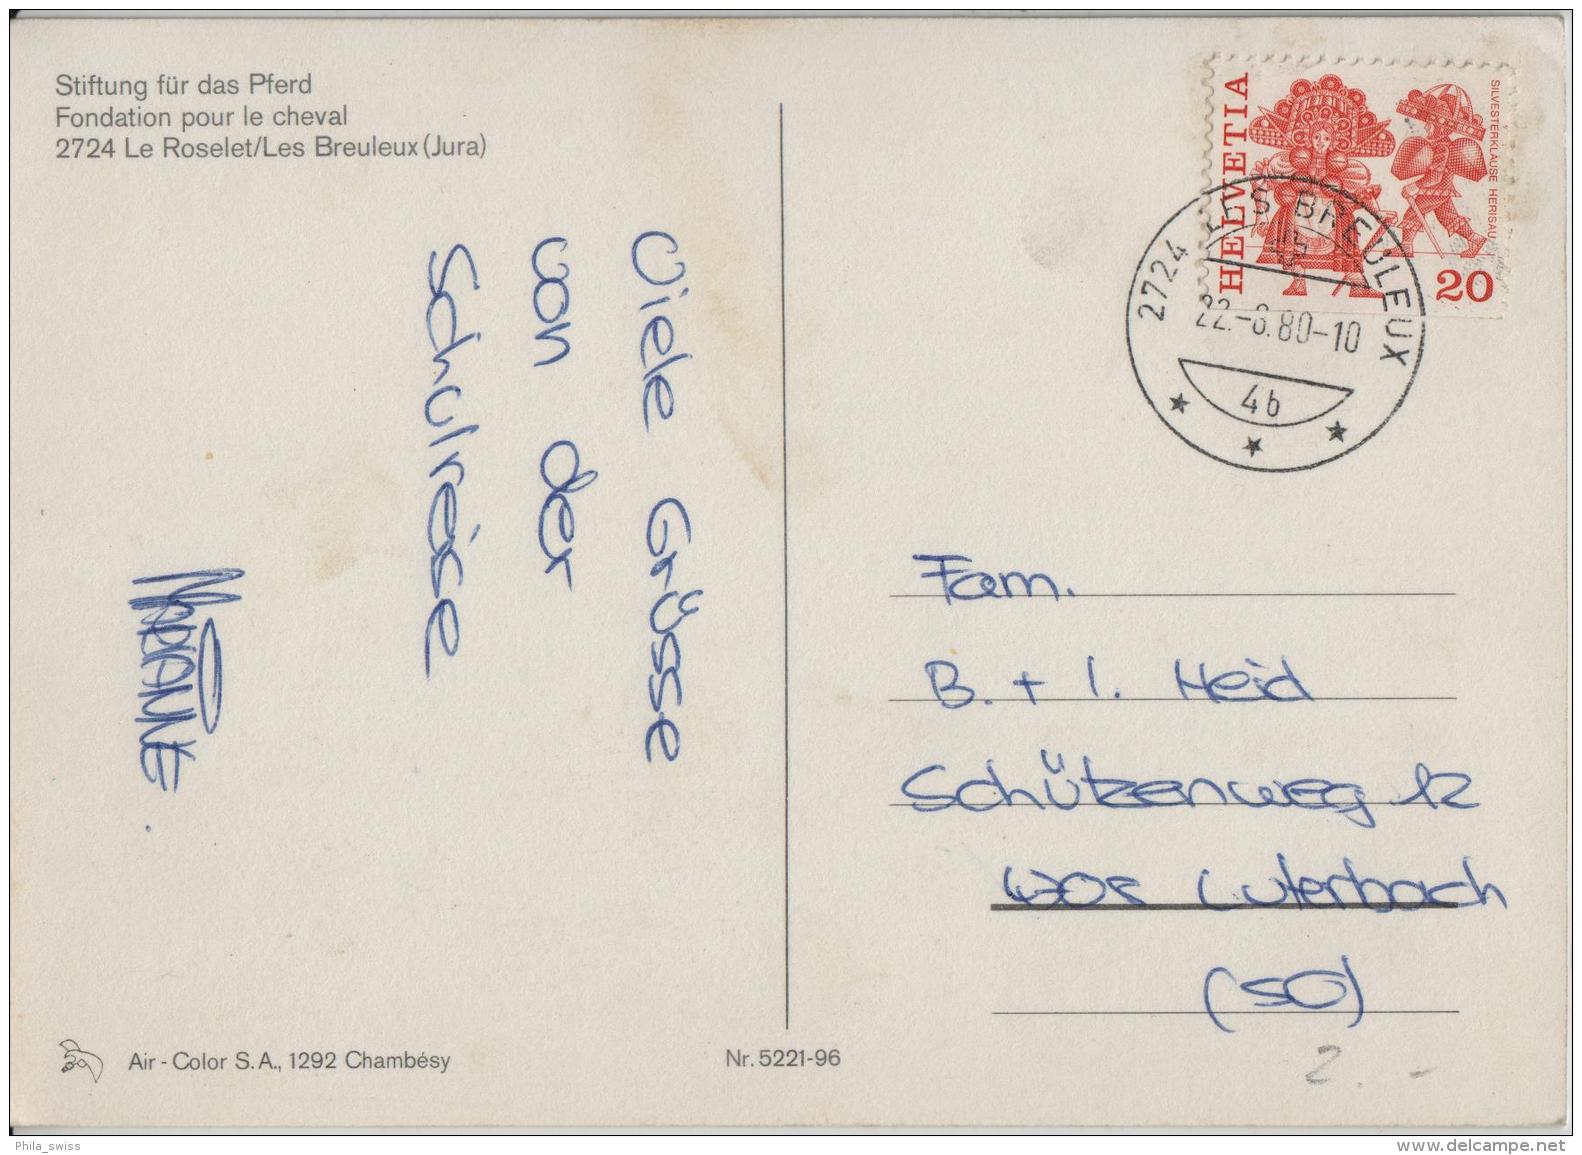 Stiftung für das Pferd
Fondation pour le cheval
2724 Le Roselet/Les Breuleux (Jura)
Viele Grüsse
von der
Schulreise
HELVETIA
SILVESTERKLÄUSE HERISAU
20
2724 LES BREULEUX
22.-8.80-10
4b
Fam.
B. + I. Heid
Schützenweg 12
Luterbach
(SO)
2. -
Air - Color S.A., 1292 Chambésy
Nr. 5221-96
Phila_swiss
www.delcampe.net